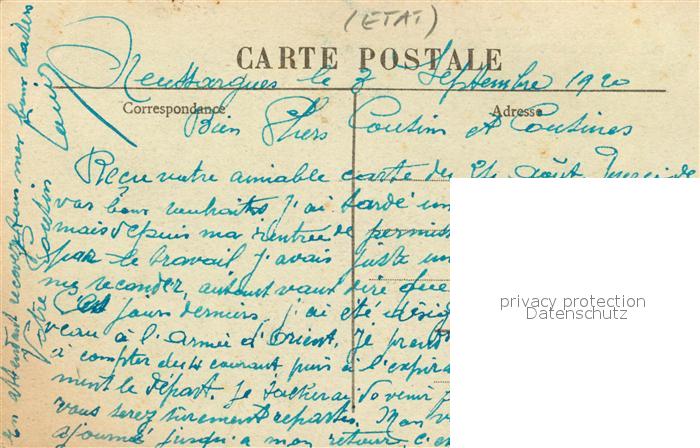 (ETAT)
CARTE POSTALE
Neussargues le 3 Septembre 1920
Correspondance
Adresse
Bien Chers Cousin et Cousines
Reçu votre aimable carte du 24 Août. Merci de
vos bons souhaits. J'ai tardé un
mais depuis ma rentrée de permiss
par le travail j'avais juste un
me reconder, autant vaut dire que
Ces jours derniers, j'ai été désig
veau à l'armée d'Orient. Je prend
à compter du 4 courant, puis à l'expira
ment le départ. Je tacherai d'o venir
vous serez sûrement repartis. Mon v
ajourné jusqu'a mon retour c'e
En attendant recevez tous mes bons baisers
Votre Cousin
Louis
privacy protection
Datenschutz